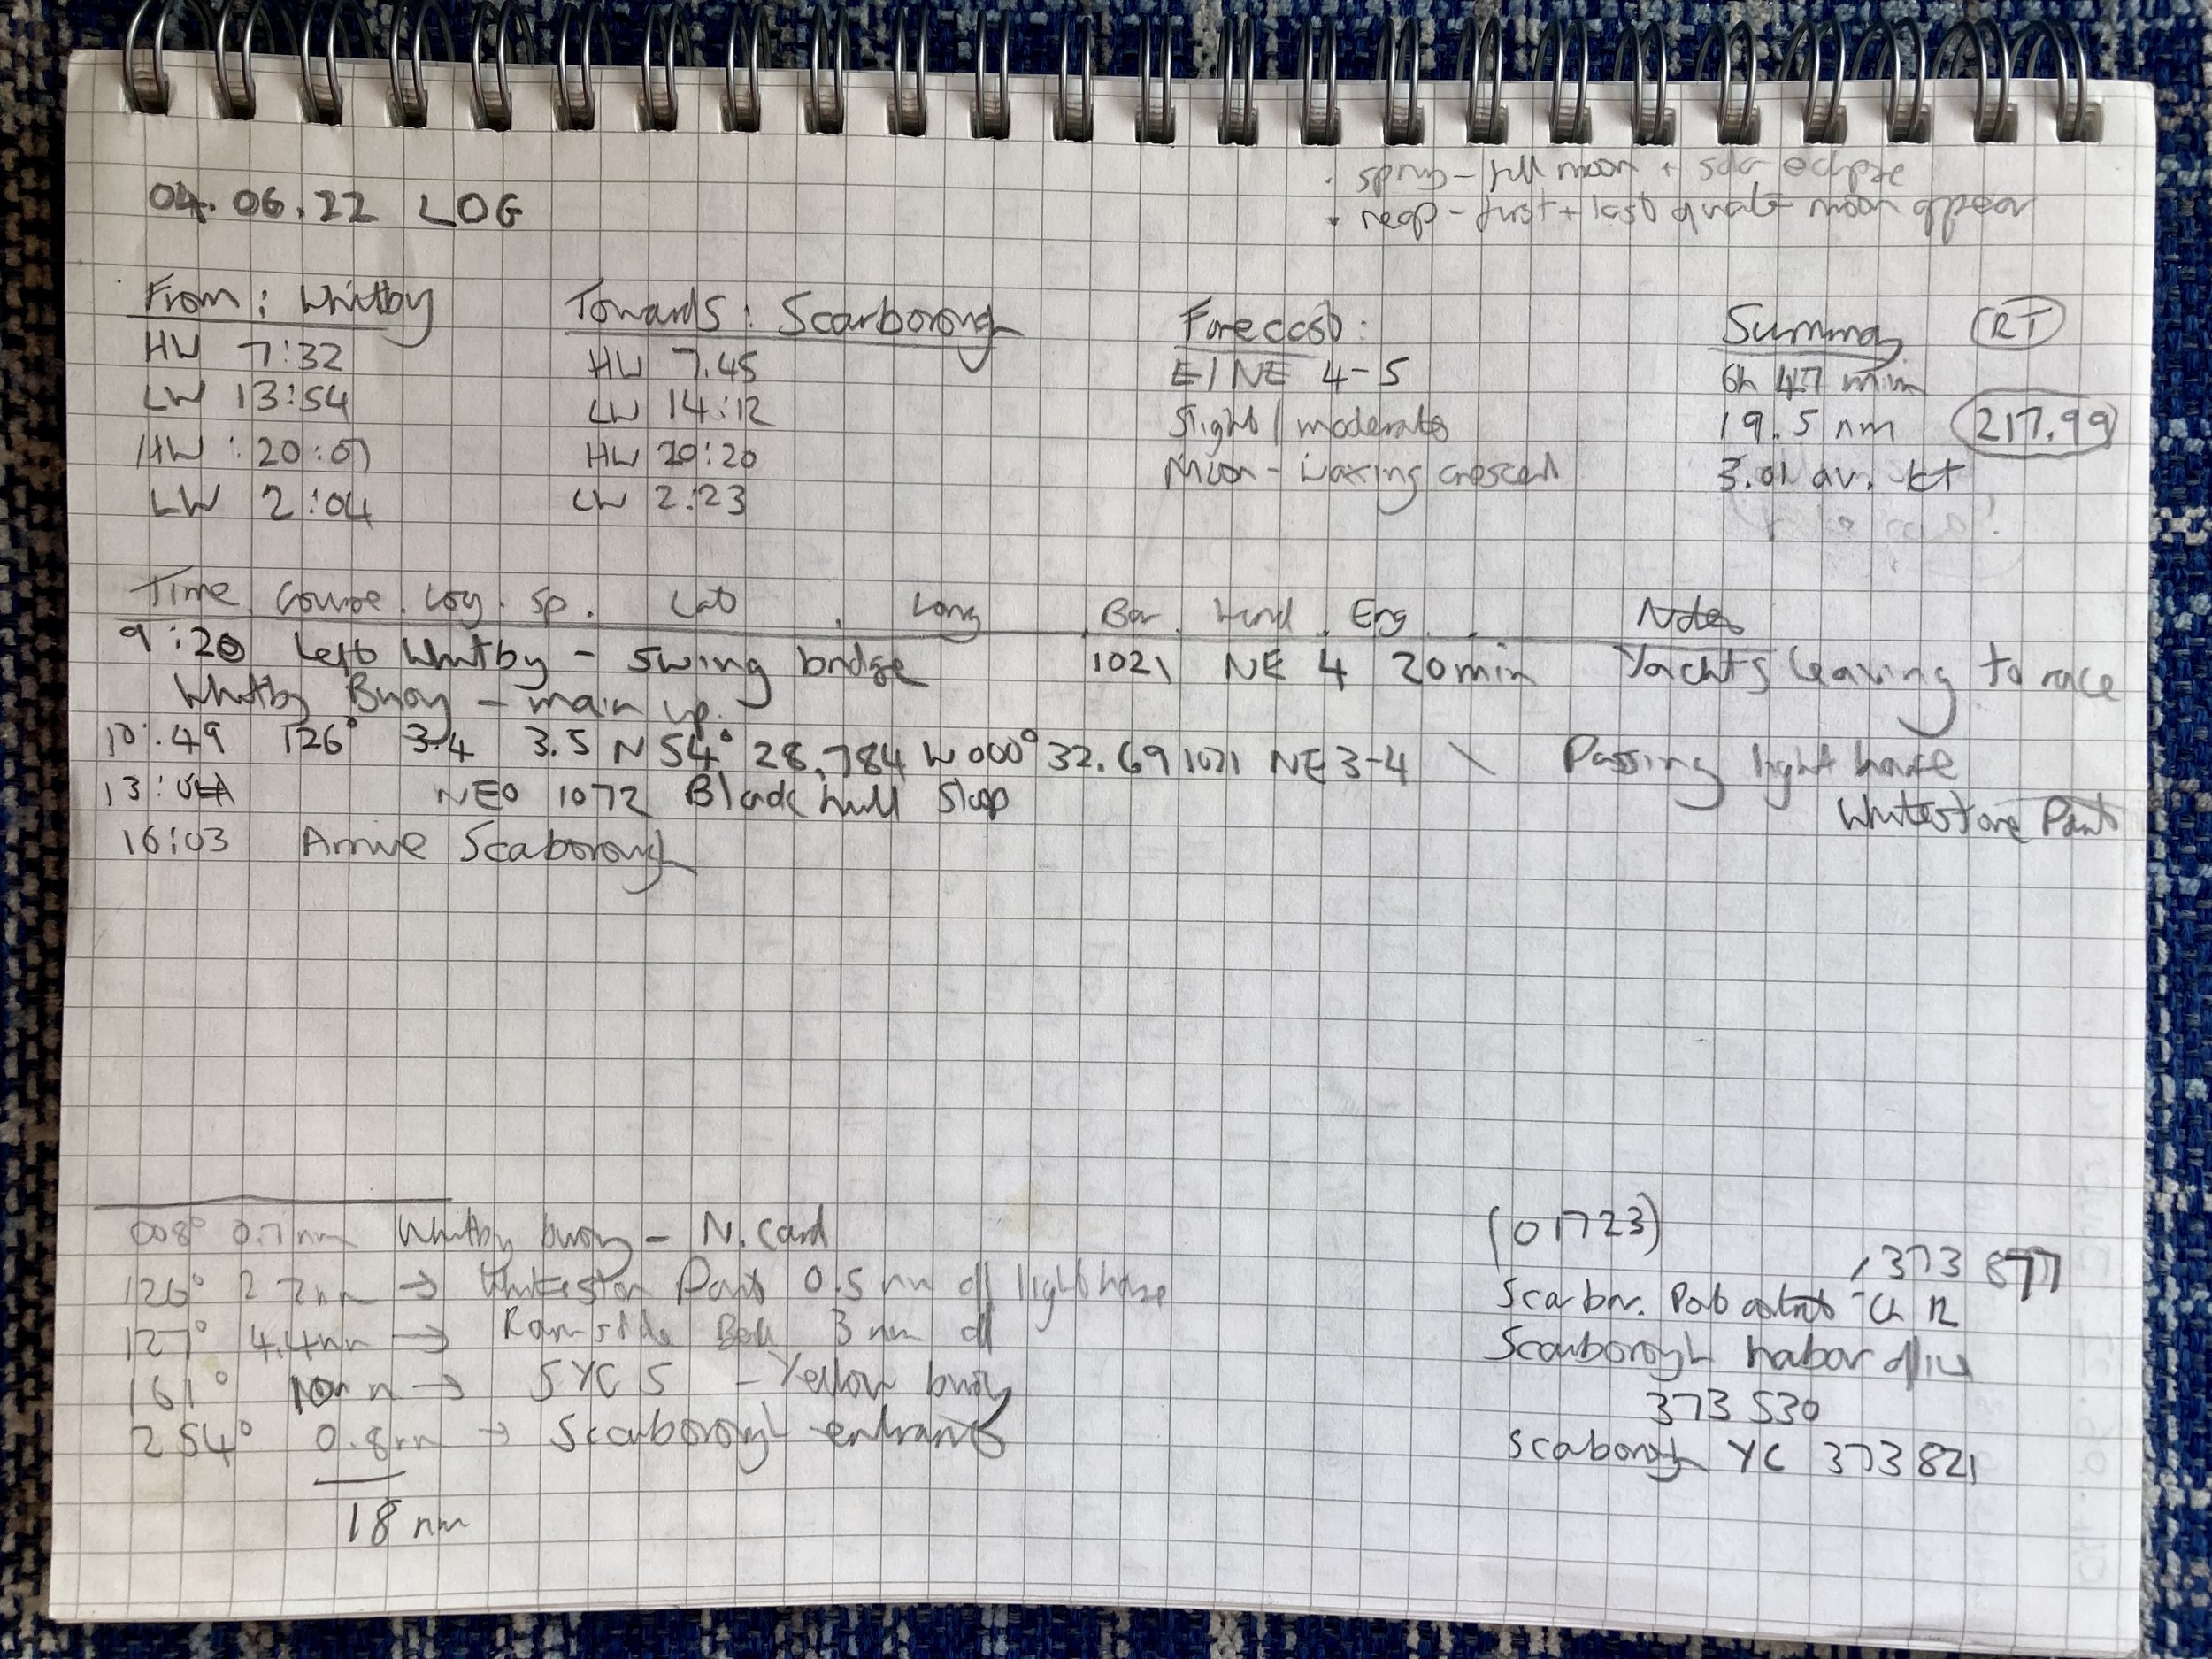 . spring - full moon + solar eclipse
. neap - first + last quate moon appear
04.06.22 LOG
From: Whitby
HW 7:32
LW 13:54
HW : 20:01
LW 2:04
Towards: Scarborough
HW 7.45
LW 14:12
HW 20:20
LW 2:23
Forecast:
E/NE 4-5
Slight / moderate
Moon - waxing crescent
Summary RT
6h 47 min
19.5 nm 217.99
3.01 av. kt
Time. Course. Log. Sp. Lat. Long. Bar. Wind. Eng. Notes
9:20 Left Whitby - swing bridge 1021 NE 4 20min Yachts leaving to race
Whitby Buoy - main up.
10:49 126° 3.4 3.5 N 54° 28.784 W 000° 32.69 1021 NE 3-4 \ Passing light house
Whitestone Point
13: NEO 1072 Black hull sloop
16:03 Arrive Scaborough
008° 0.7nm Whitby buoy - N. Card
126° 2.2nm → Whiteston Point 0.5 nm off light house
127° 4.4nm → 3 nm off
161° 10 nm → SYC 5 - Yellow buoy
254° 0.8nm → Scaborough entrance
18 nm
(01723)
373 877
Scarbor. Port control - Ch 12
Scarborough habor office
373 530
Scaborough YC 373 821